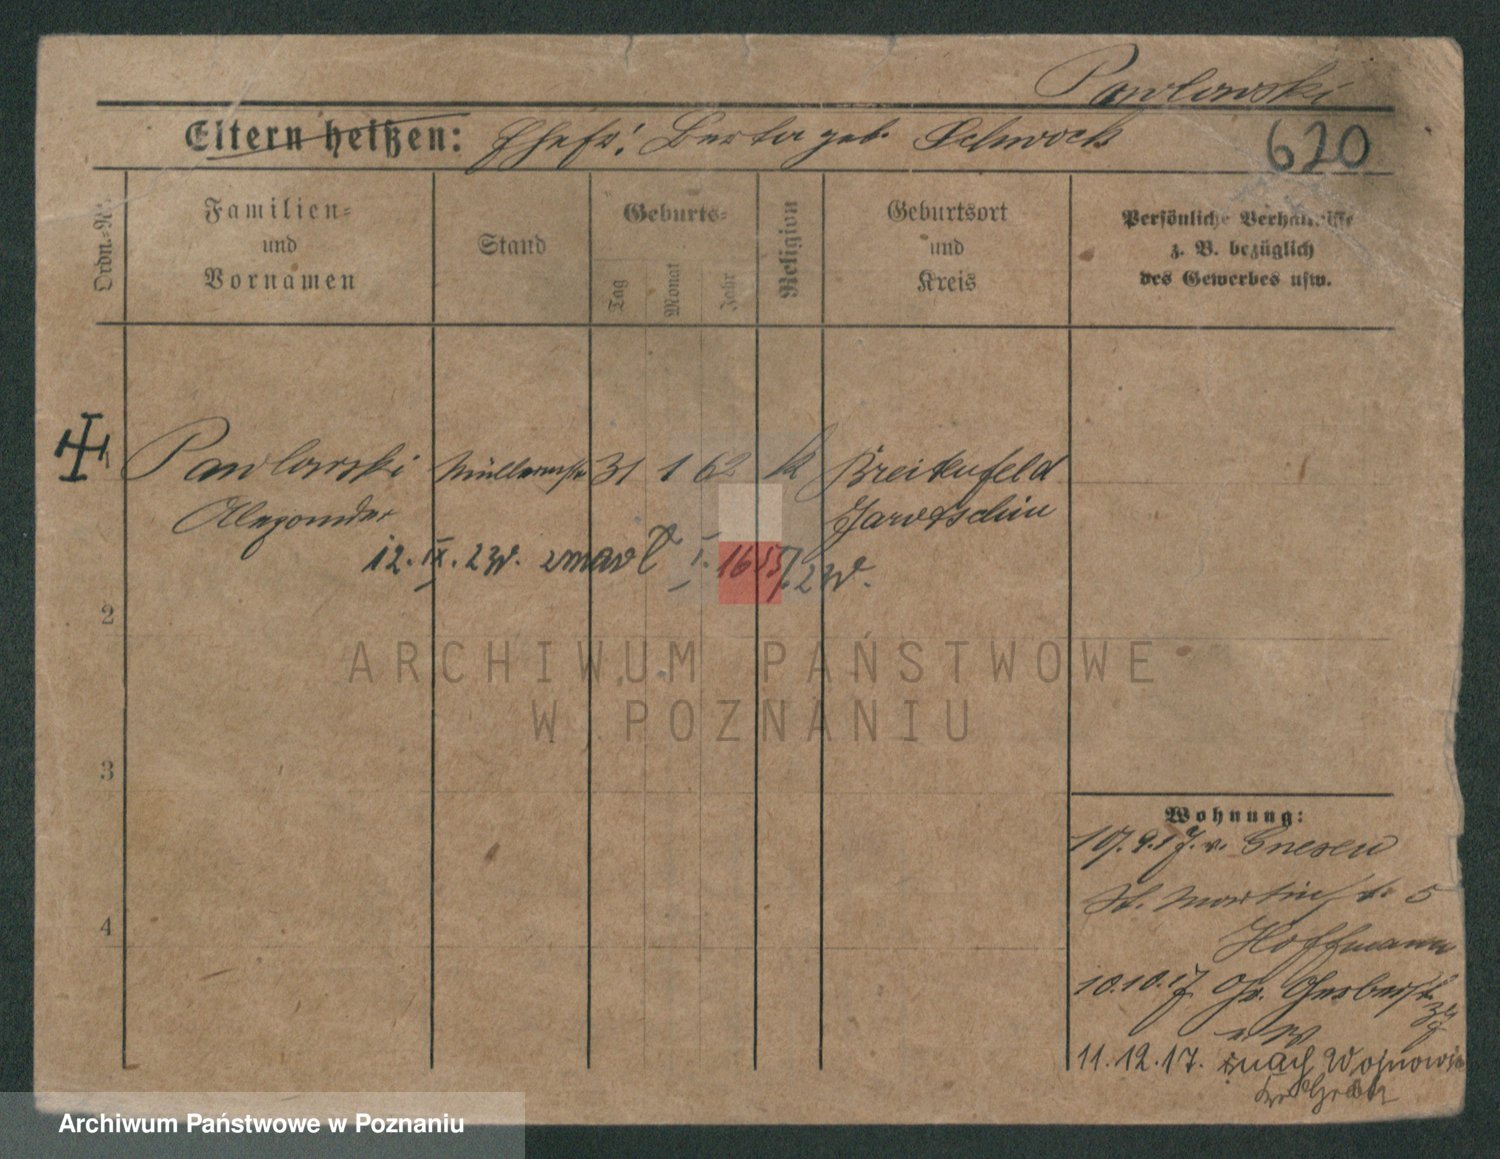 Pawlowski
Eltern heißen: Ehefr: Berta geb. Schwock
620
Ordn.-Nr.
Familien- und Vornamen
Stand
Geburts-
Tag
Monat
Jahr
Religion
Geburtsort und Kreis
Persönliche Verhältnisse
z. B. bezüglich
des Gewerbes usw.
1 Pawlowski 31 1 62 k Breitenfeld
Alexander Jarotschin
12. IX. 23r. zmarł
2
ARCHIWUM PAŃSTWOWE
W POZNANIU
3
4
Wohnung:
v. Gnesen
St. Martinstr. 5
Hoffmann
10.10.17 Gr. Gerberstr.
11.12.17. nach
Archiwum Państwowe w Poznaniu